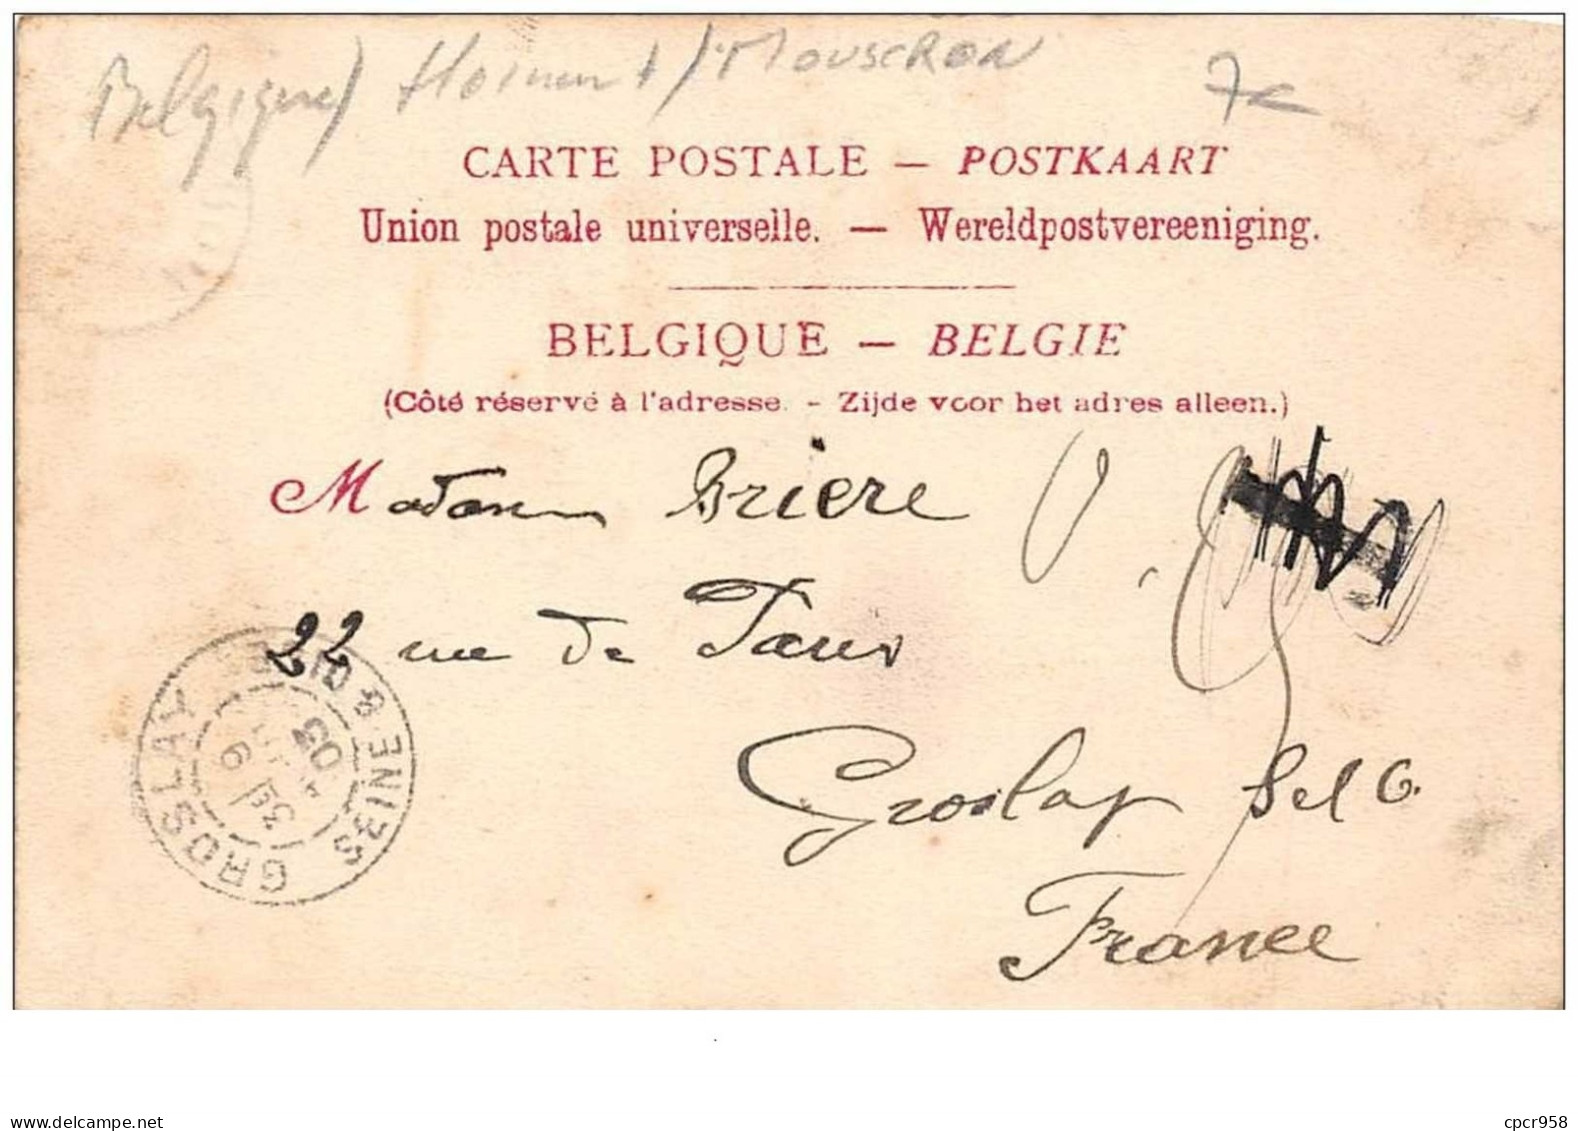 Belgique) Hainaut / MOUSCRON 7€
CARTE POSTALE — POSTKAART
Union postale universelle. — Wereldpostvereeniging.
BELGIQUE — BELGIE
(Côté réservé à l'adresse. - Zijde voor het adres alleen.)
Madame Briere
22 rue de Paris
Groslay S et O.
France
GROSLAY SEINE & OISE
3E 6 03
www.delcampe.net cpcr958